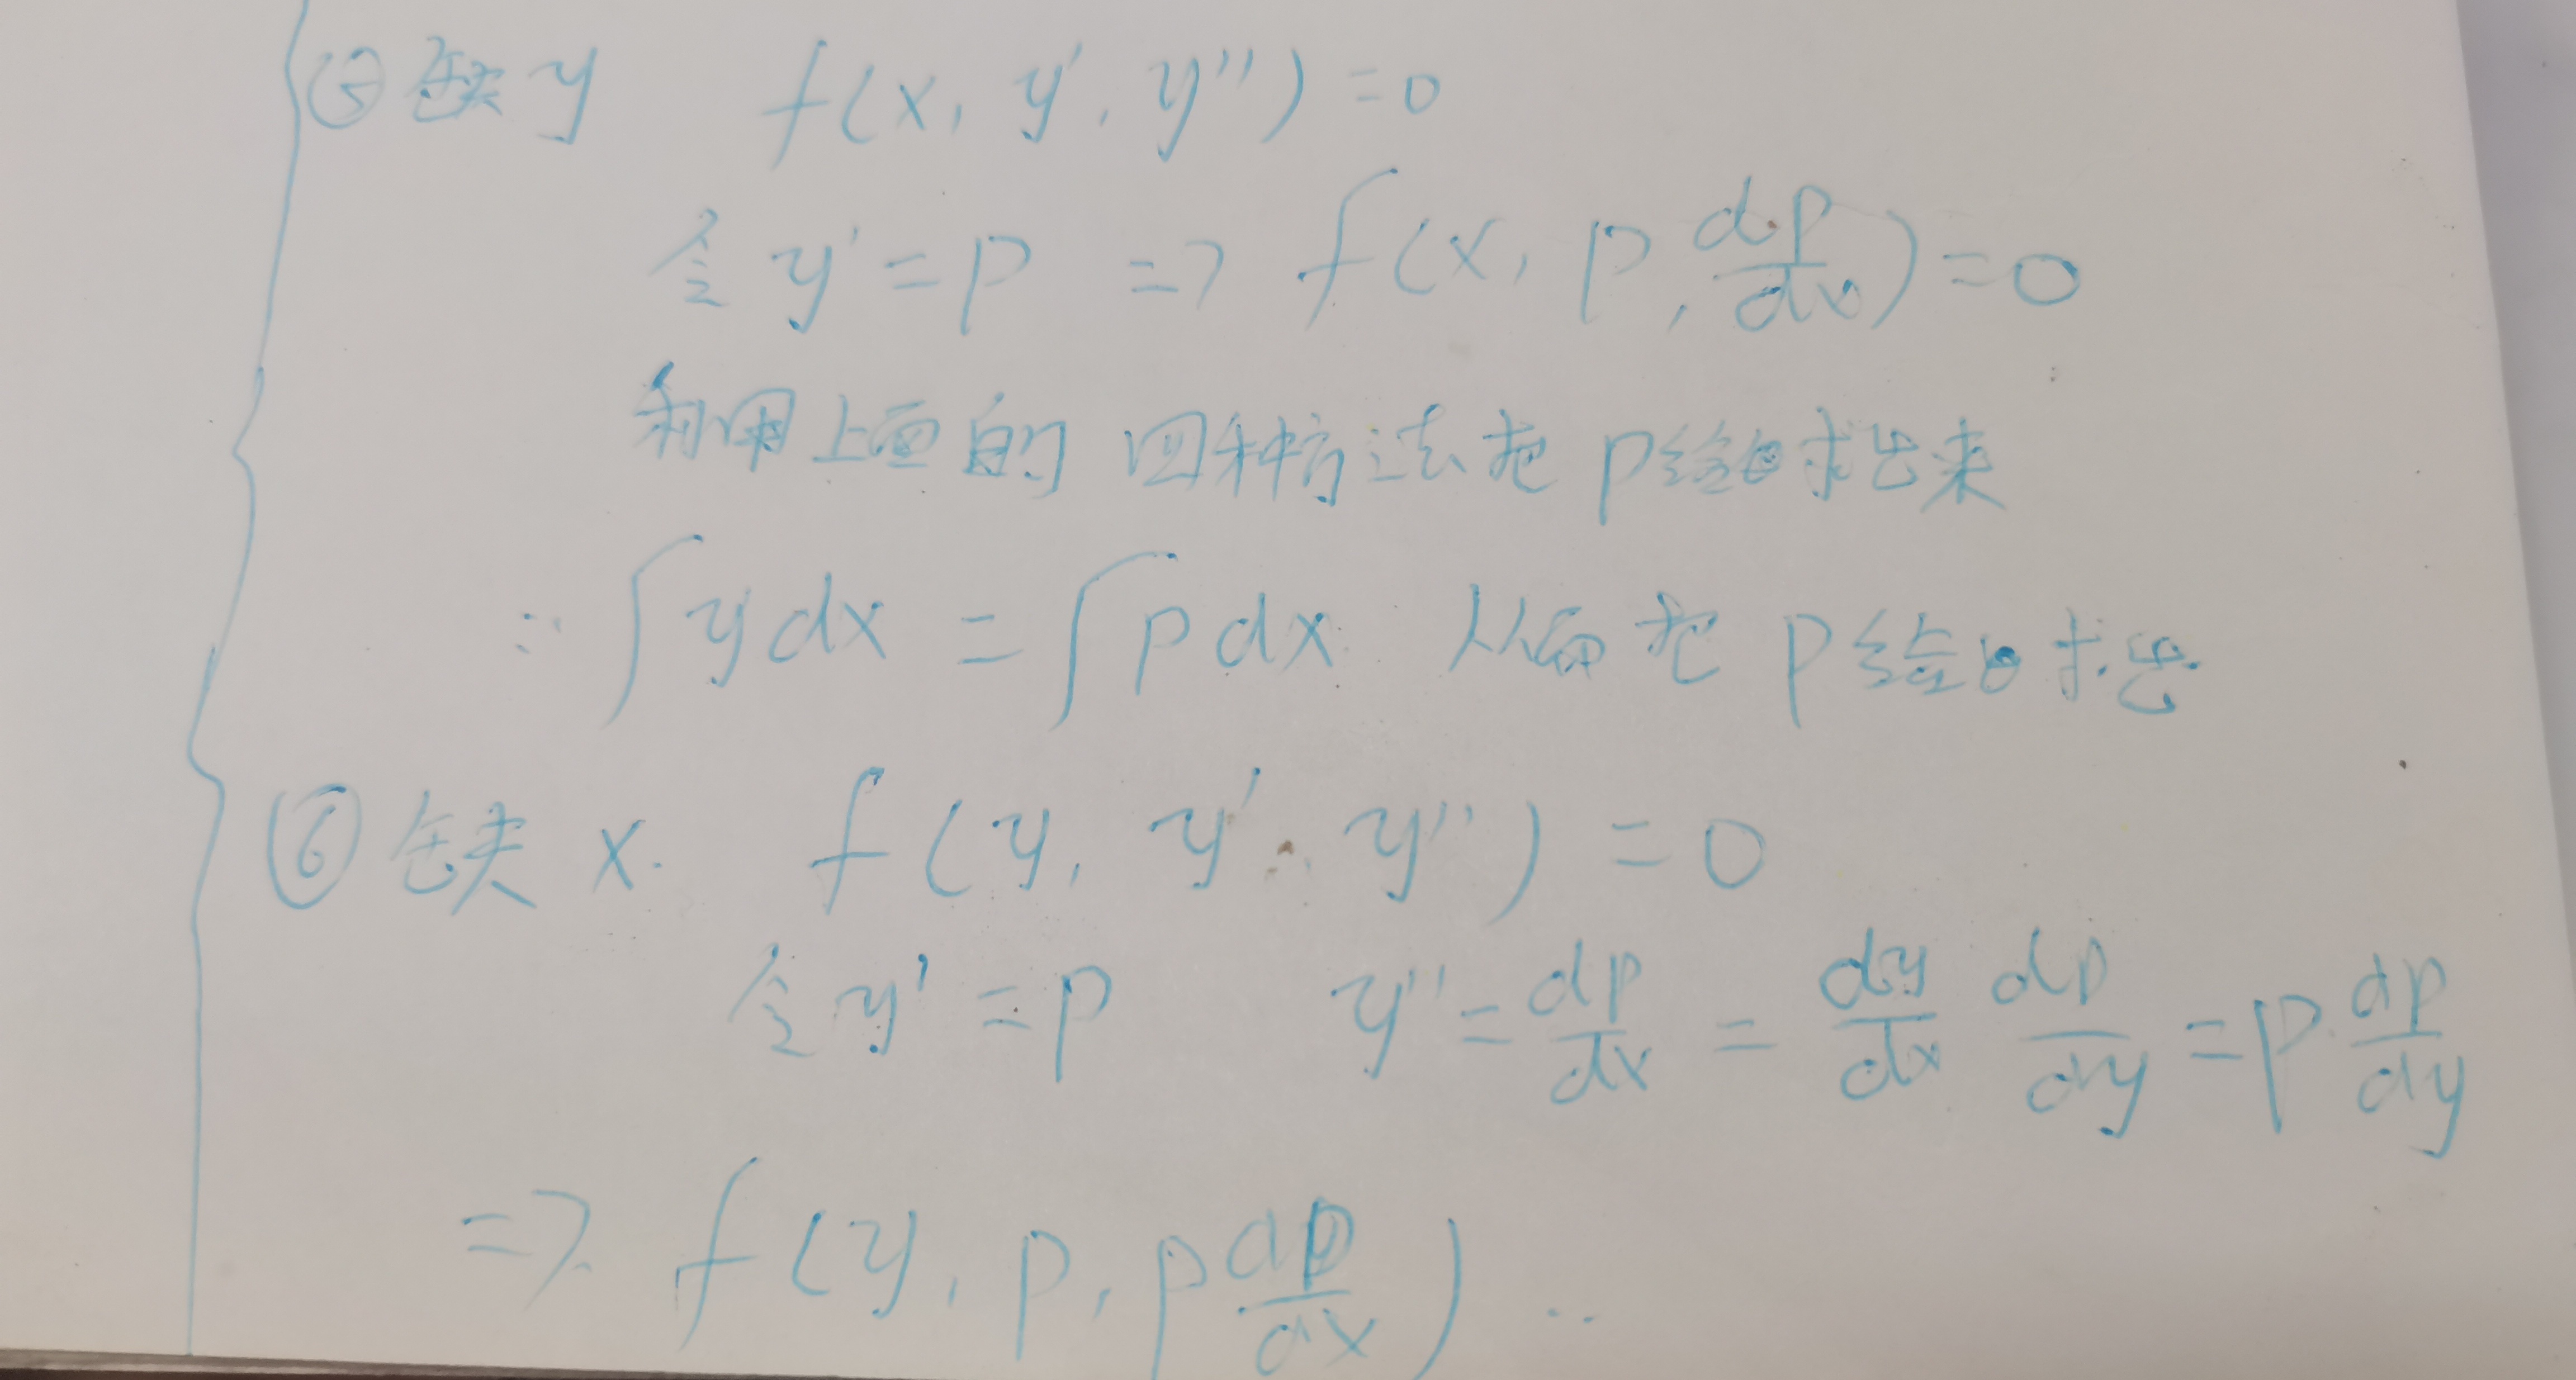 ⑤ 缺y f(x, y', y'') = 0
令 y' = p => f(x, p, dp/dx) = 0
利用上面的四种方法把p给求出来
∴ ∫ y dx = ∫ p dx 从而把p给求出
⑥ 缺 x. f(y, y', y'') = 0
令 y' = p y'' = dp/dx = dy/dx dp/dy = p dp/dy
=> f(y, p, p dp/dx) ..